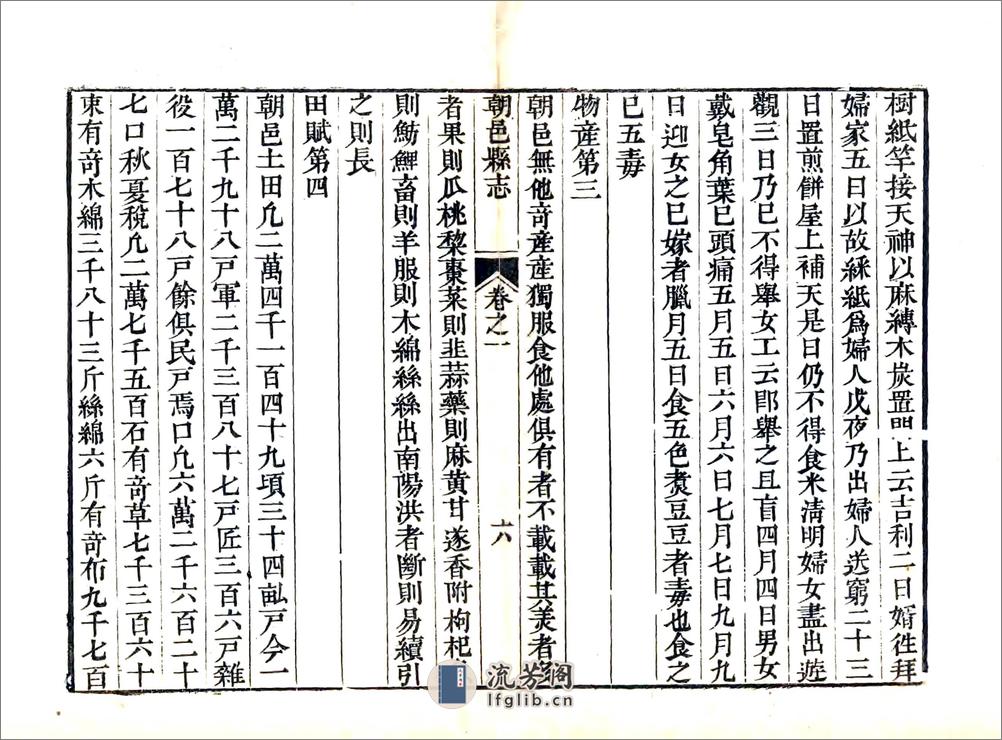 樹紙竿接天神以麻縛木炭置門上云吉利二日婿徃拜
婦家五日以故綵紙爲婦人戊夜乃出婦人送窮二十三
日置煎餅屋上補天是日仍不得食米淸明婦女盡出遊
觀三日乃巳不得舉女工云卽舉之且盲四月四日男女
戴皂角葉巳頭痛五月五日六月六日七月七日九月九
日迎女之巳嫁者臘月五日食五色煑豆豆者毒也食之
巳五毒
物產第三
朝邑無他竒産産獨服食他處俱有者不載載其美者
朝邑縣志
卷之一
六
者果則瓜桃棃棗菜則韭蒜藥則麻黄甘遂香附枸杞
則魴鯉畜則羊服則木綿絲絲出南陽洪者斷則易續引
之則長
田賦第四
朝邑土田凢二萬四千一百四十九頃三十四畝戸今一
萬二千九十八戸軍二千三百八十七戸匠三百六戸雜
役一百七十八戸餘俱民戸焉口凢六萬二千六百二十
七口秋夏稅凢二萬七千五百石有竒草七千三百六十
束有竒木綿三千八十三斤絲綿六斤有竒布九千七百
流芳閣
lfglib.cn